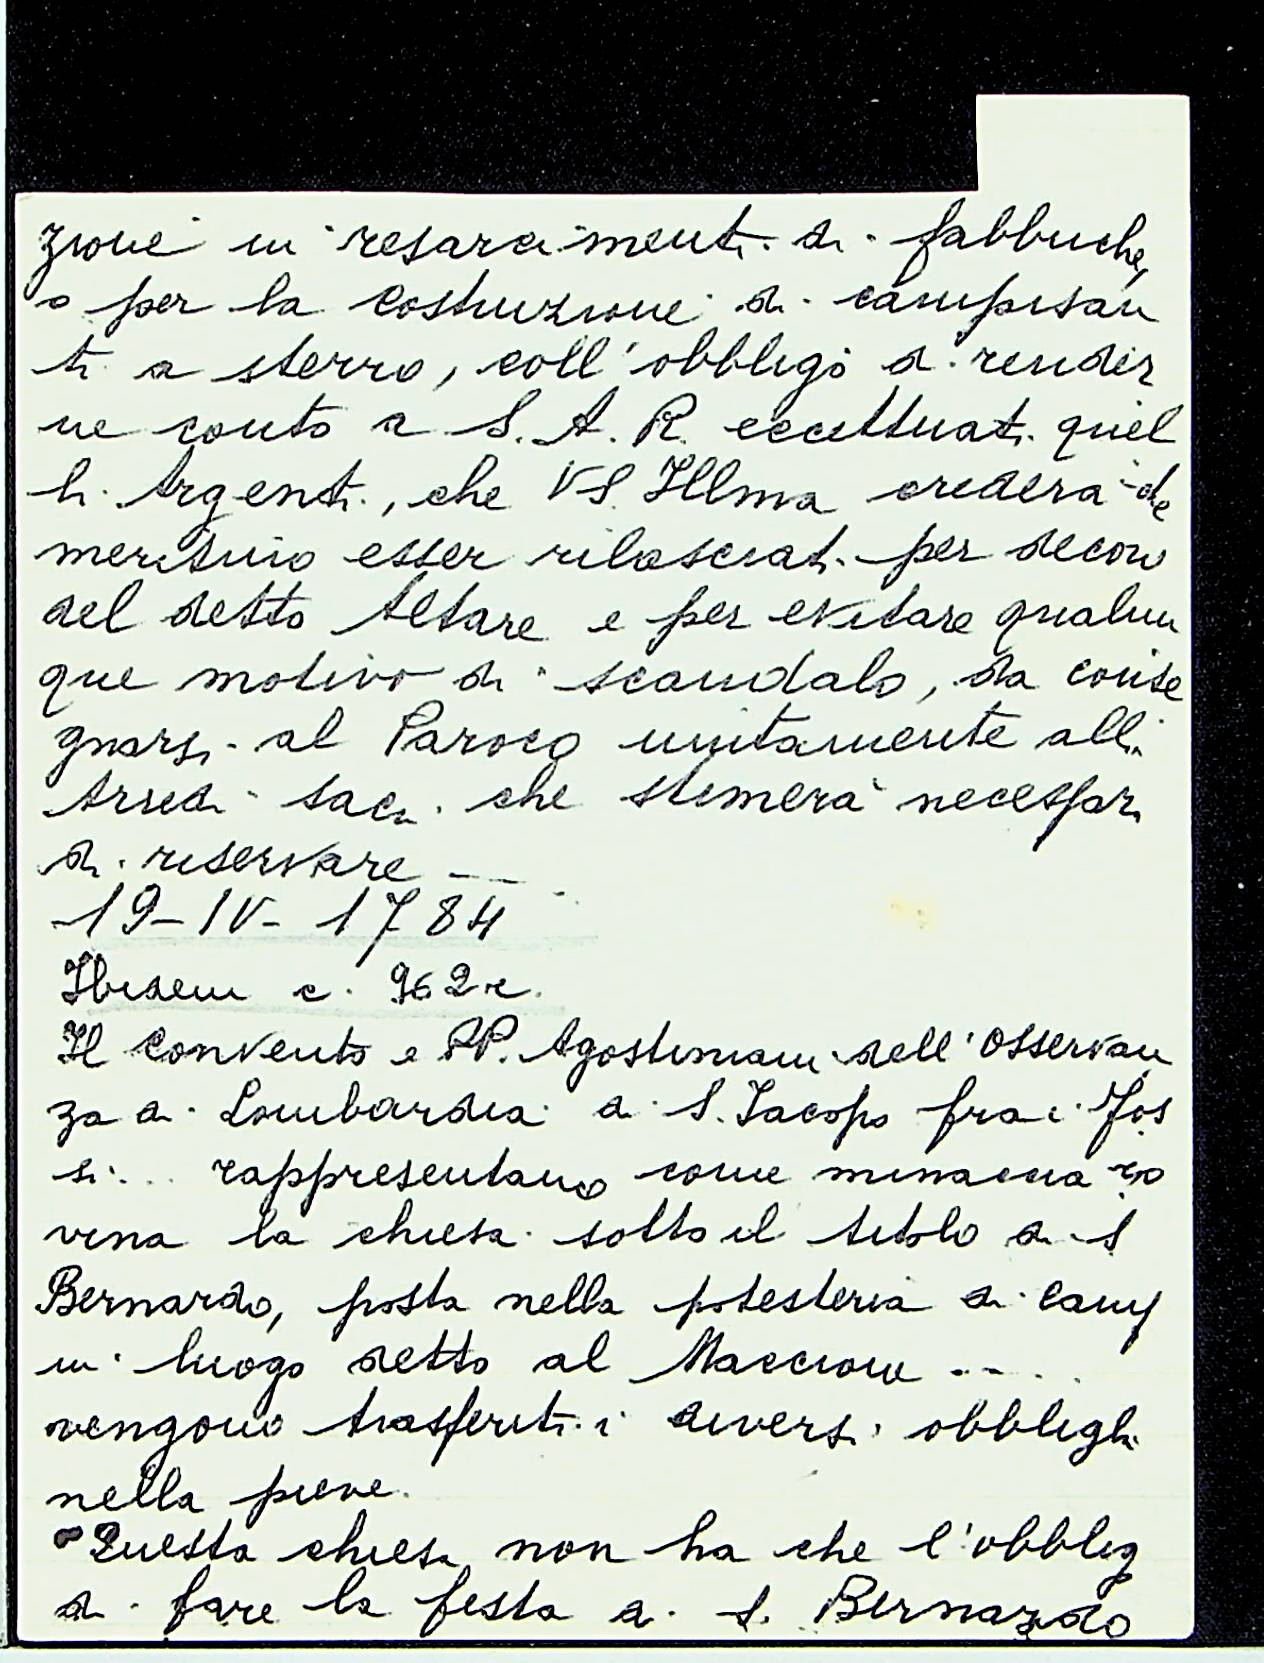 zione in resarcimenti di fabbriche,
o per la costruzione di campisan
ti a sterro, coll'obbligo di render
ne conto a S. A. R. eccettuati quel
li Argenti, che VS. Illma crederà che
meritino esser rilasciati per decoro
del detto Altare e per evitare qualun
que motivo di scandalo, da conse
gnarsi al Paroco unitamente alli
Arredi sacri che stimerà necessari
di riservare —
19-IV-1784
Ibidem c. 962r.
Il convento e PP. Agostiniani dell'Osservan
za di Lombardia di S. Iacopo fra i Fos
si... rappresentano come minaccia ro
vina la chiesa sotto il titolo di S
Bernardo, posta nella potesteria di Camp
in luogo detto al Maccione ....
vengono trasferiti i diversi obblighi
nella pieve.
Questa chiesa non ha che l'obblig
di fare la festa di S. Bernardo